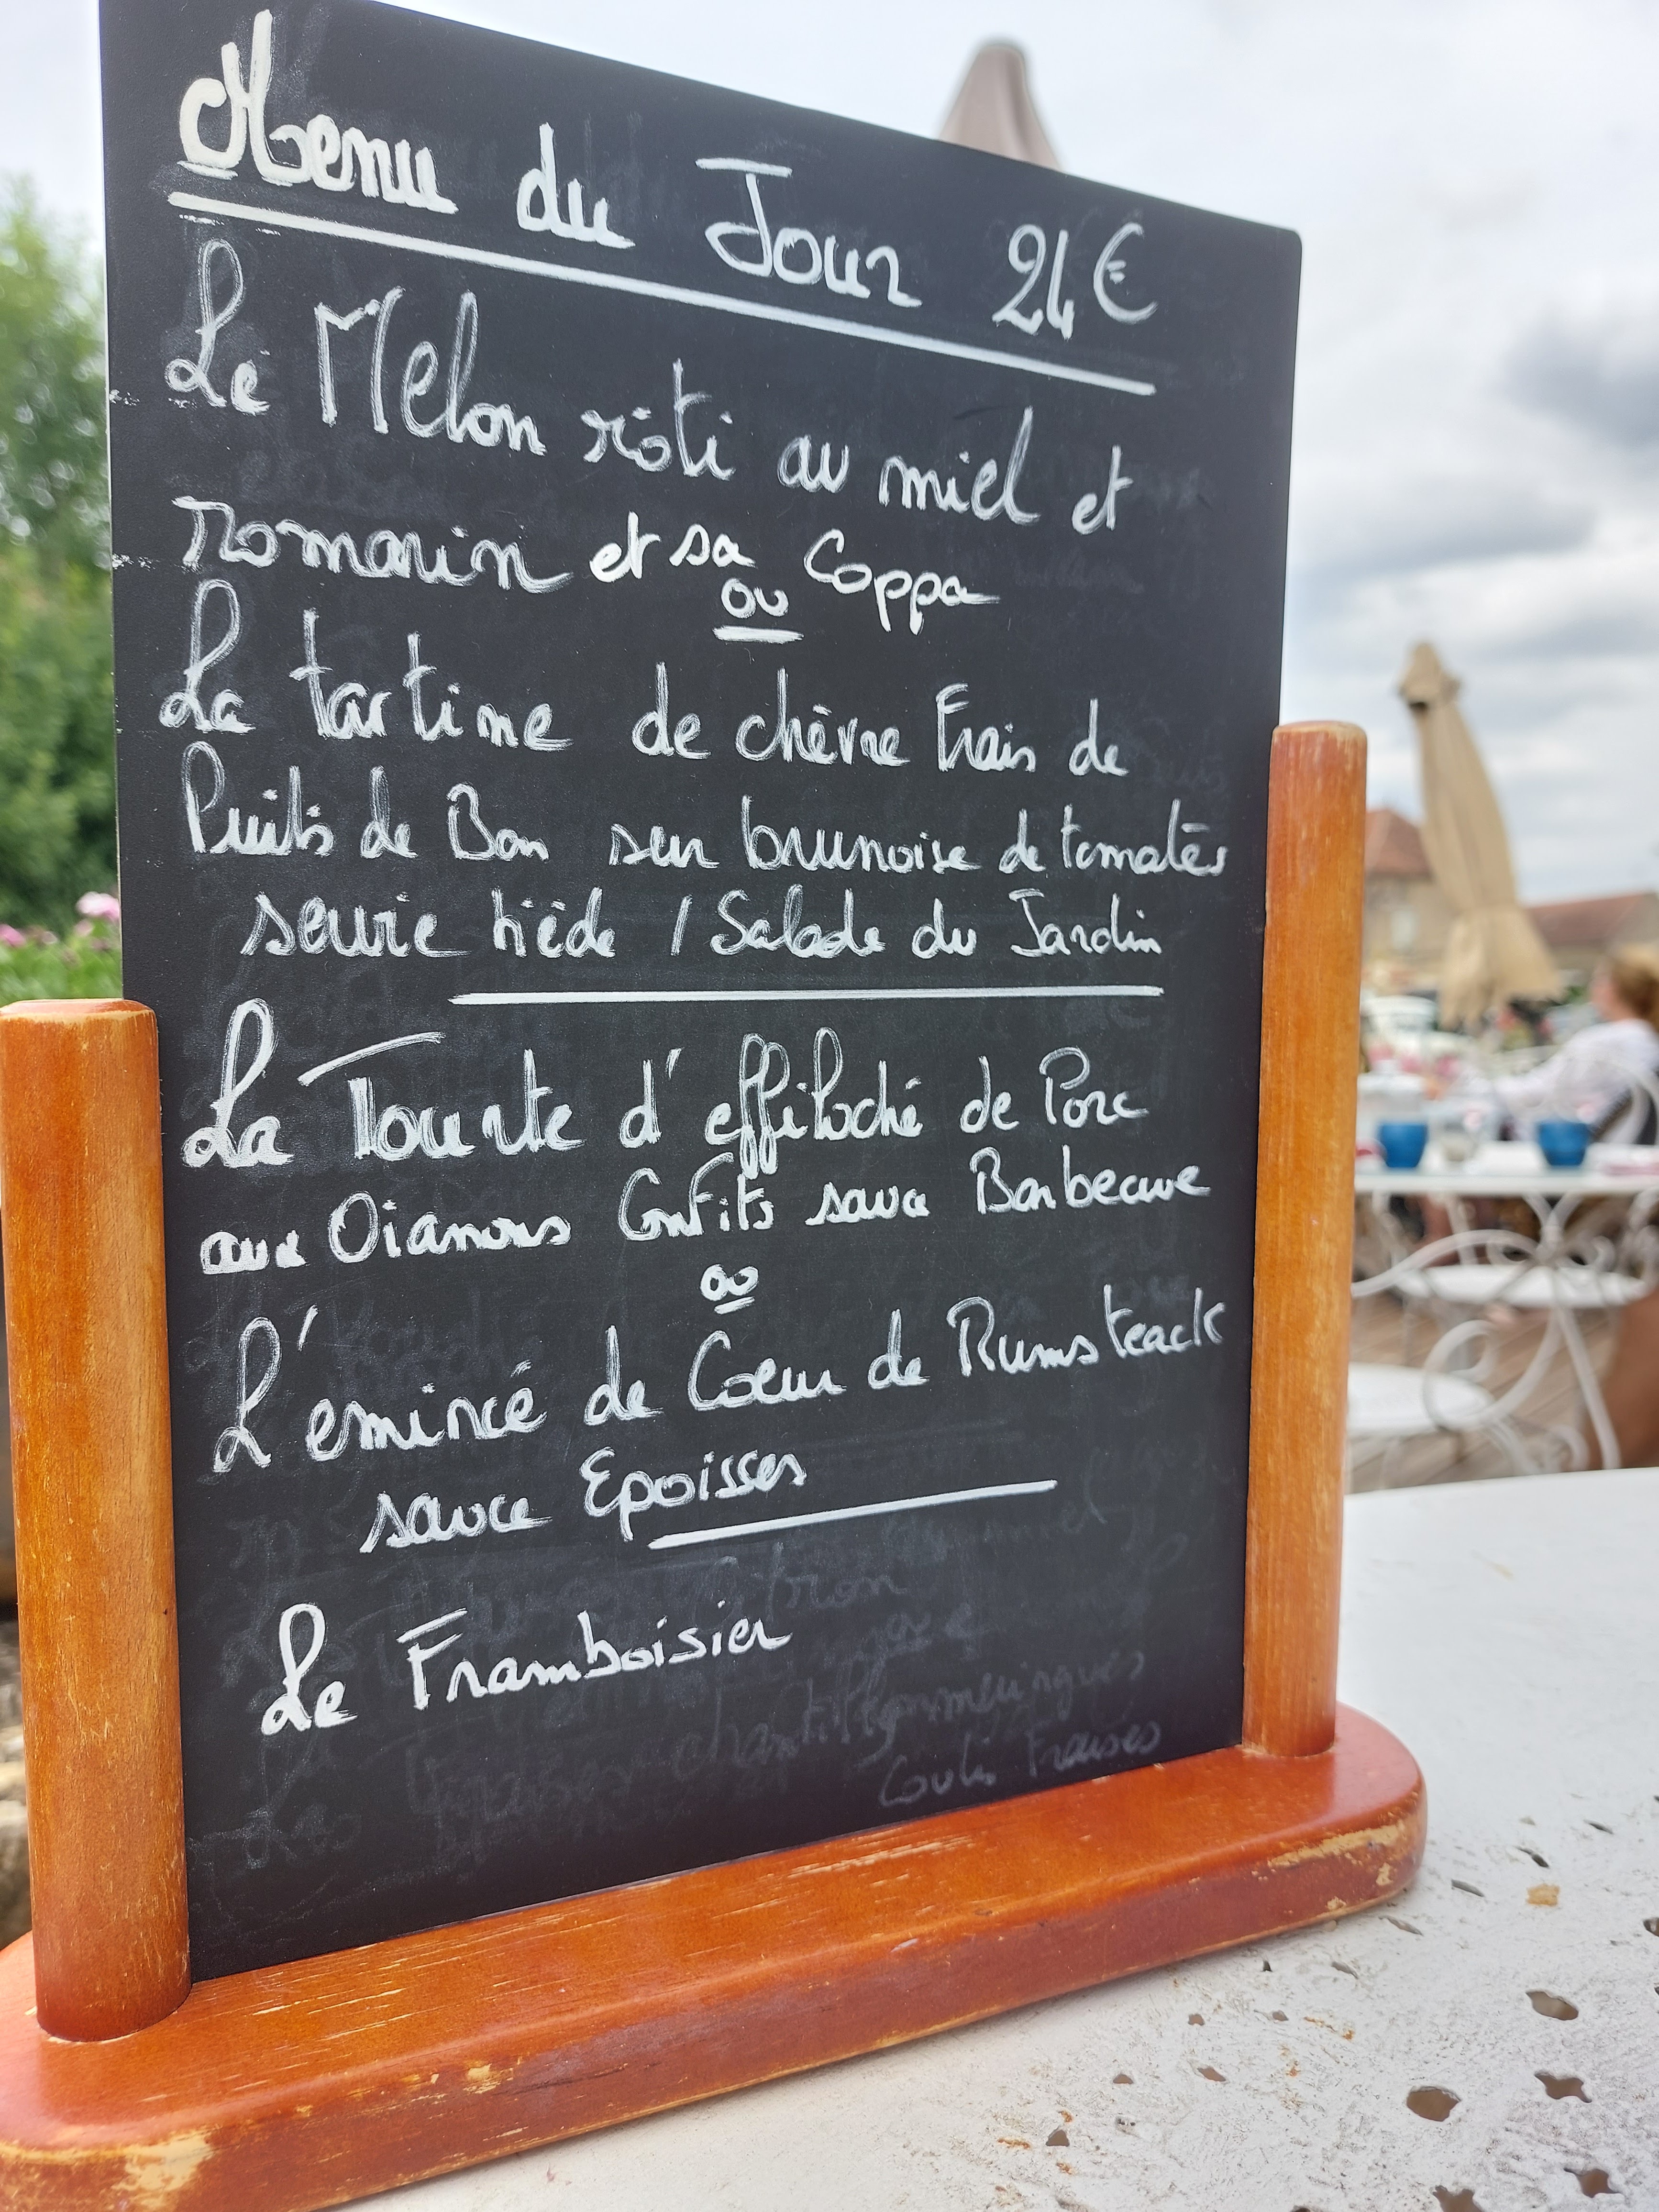 Menu du Jour 24€
Le Melon rôti au miel et
romarin et sa Coppa
ou
La tartine de chèvre Frais de
Puits de Bon sur brunoise de tomates
servie tiède / Salade du Jardin
La Tourte d'effiloché de Porc
aux Oianons Confits sauce Barbecue
ou
L'émincé de Coeur de Rumsteack
sauce Epoisses
Le Framboisier
Coulis Fraises